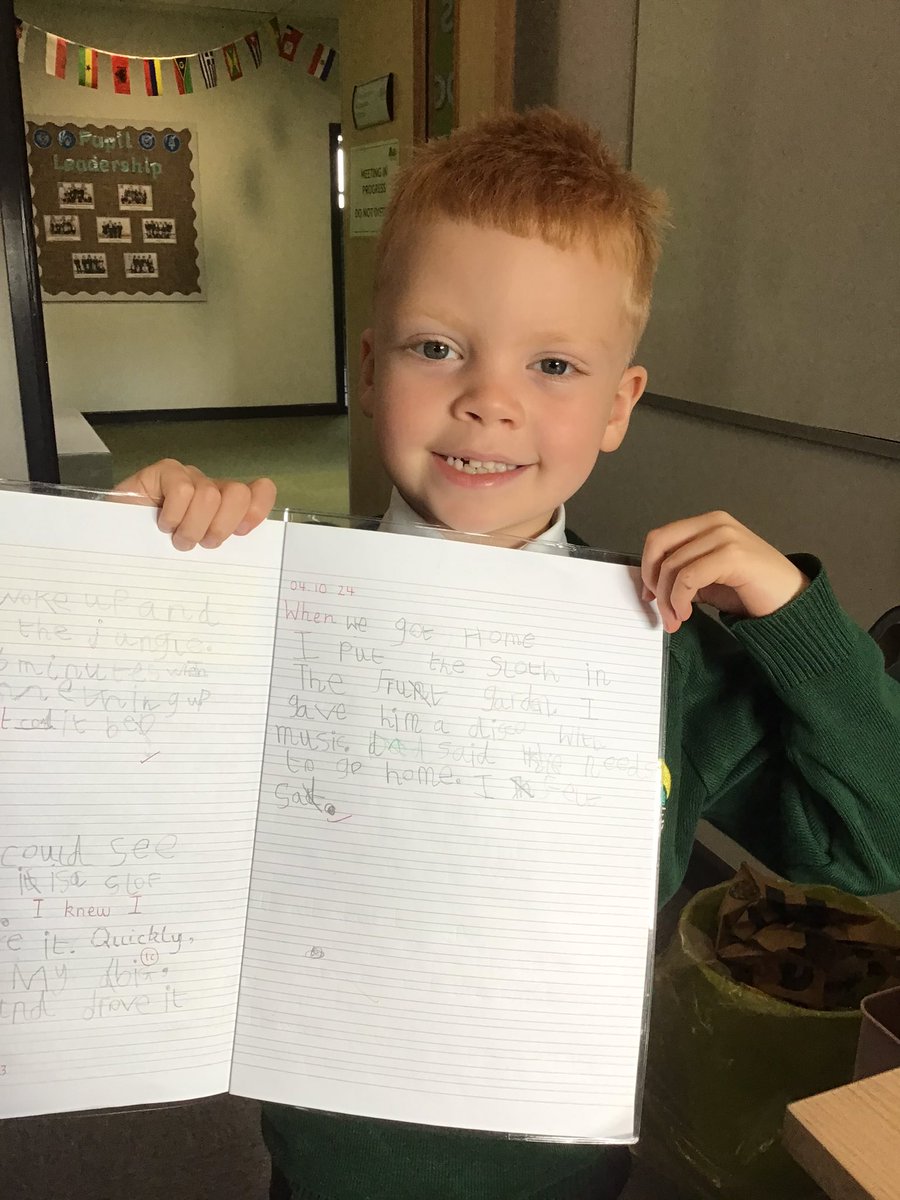 Pupil
Leadership
MEETING IN
PROGRESS
woke up and
the jungle.
minutes
up
it be?
could see
it is a slof
I knew I
it. Quickly,
My
and drove it
04.10 24
When we got Home
I put the sloth in
The garden I
gave him a disco with
music. Dad said he need
to go home. I